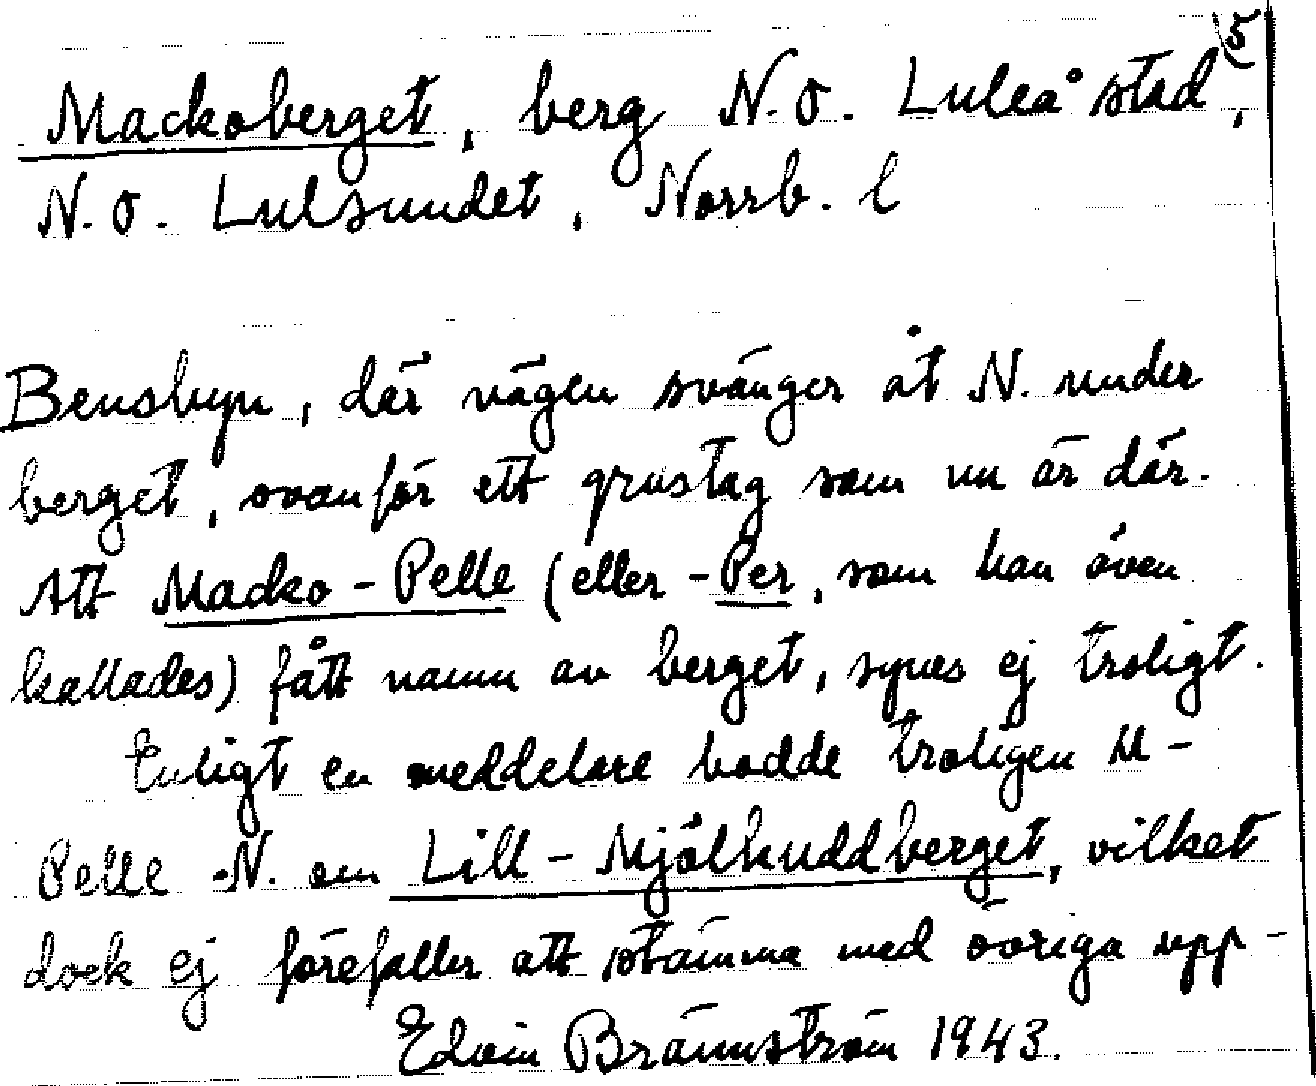 5
Mackoberget, berg N.O. Luleå stad,
N.O. Lulsundet, Norrb. l
Bensbyn, där vägen svänger åt N. under
berget, ovanför ett grustag som nu är där.
Att Macko-Pelle (eller -Per, som han även
kallades) fått namn av berget, synes ej troligt.
Enligt en meddelare bodde troligen M-
Pelle N. om Lill-Mjölkuddberget, vilket
dock ej förefaller att stämma med övriga upp-
Edvin Brännström 1943.